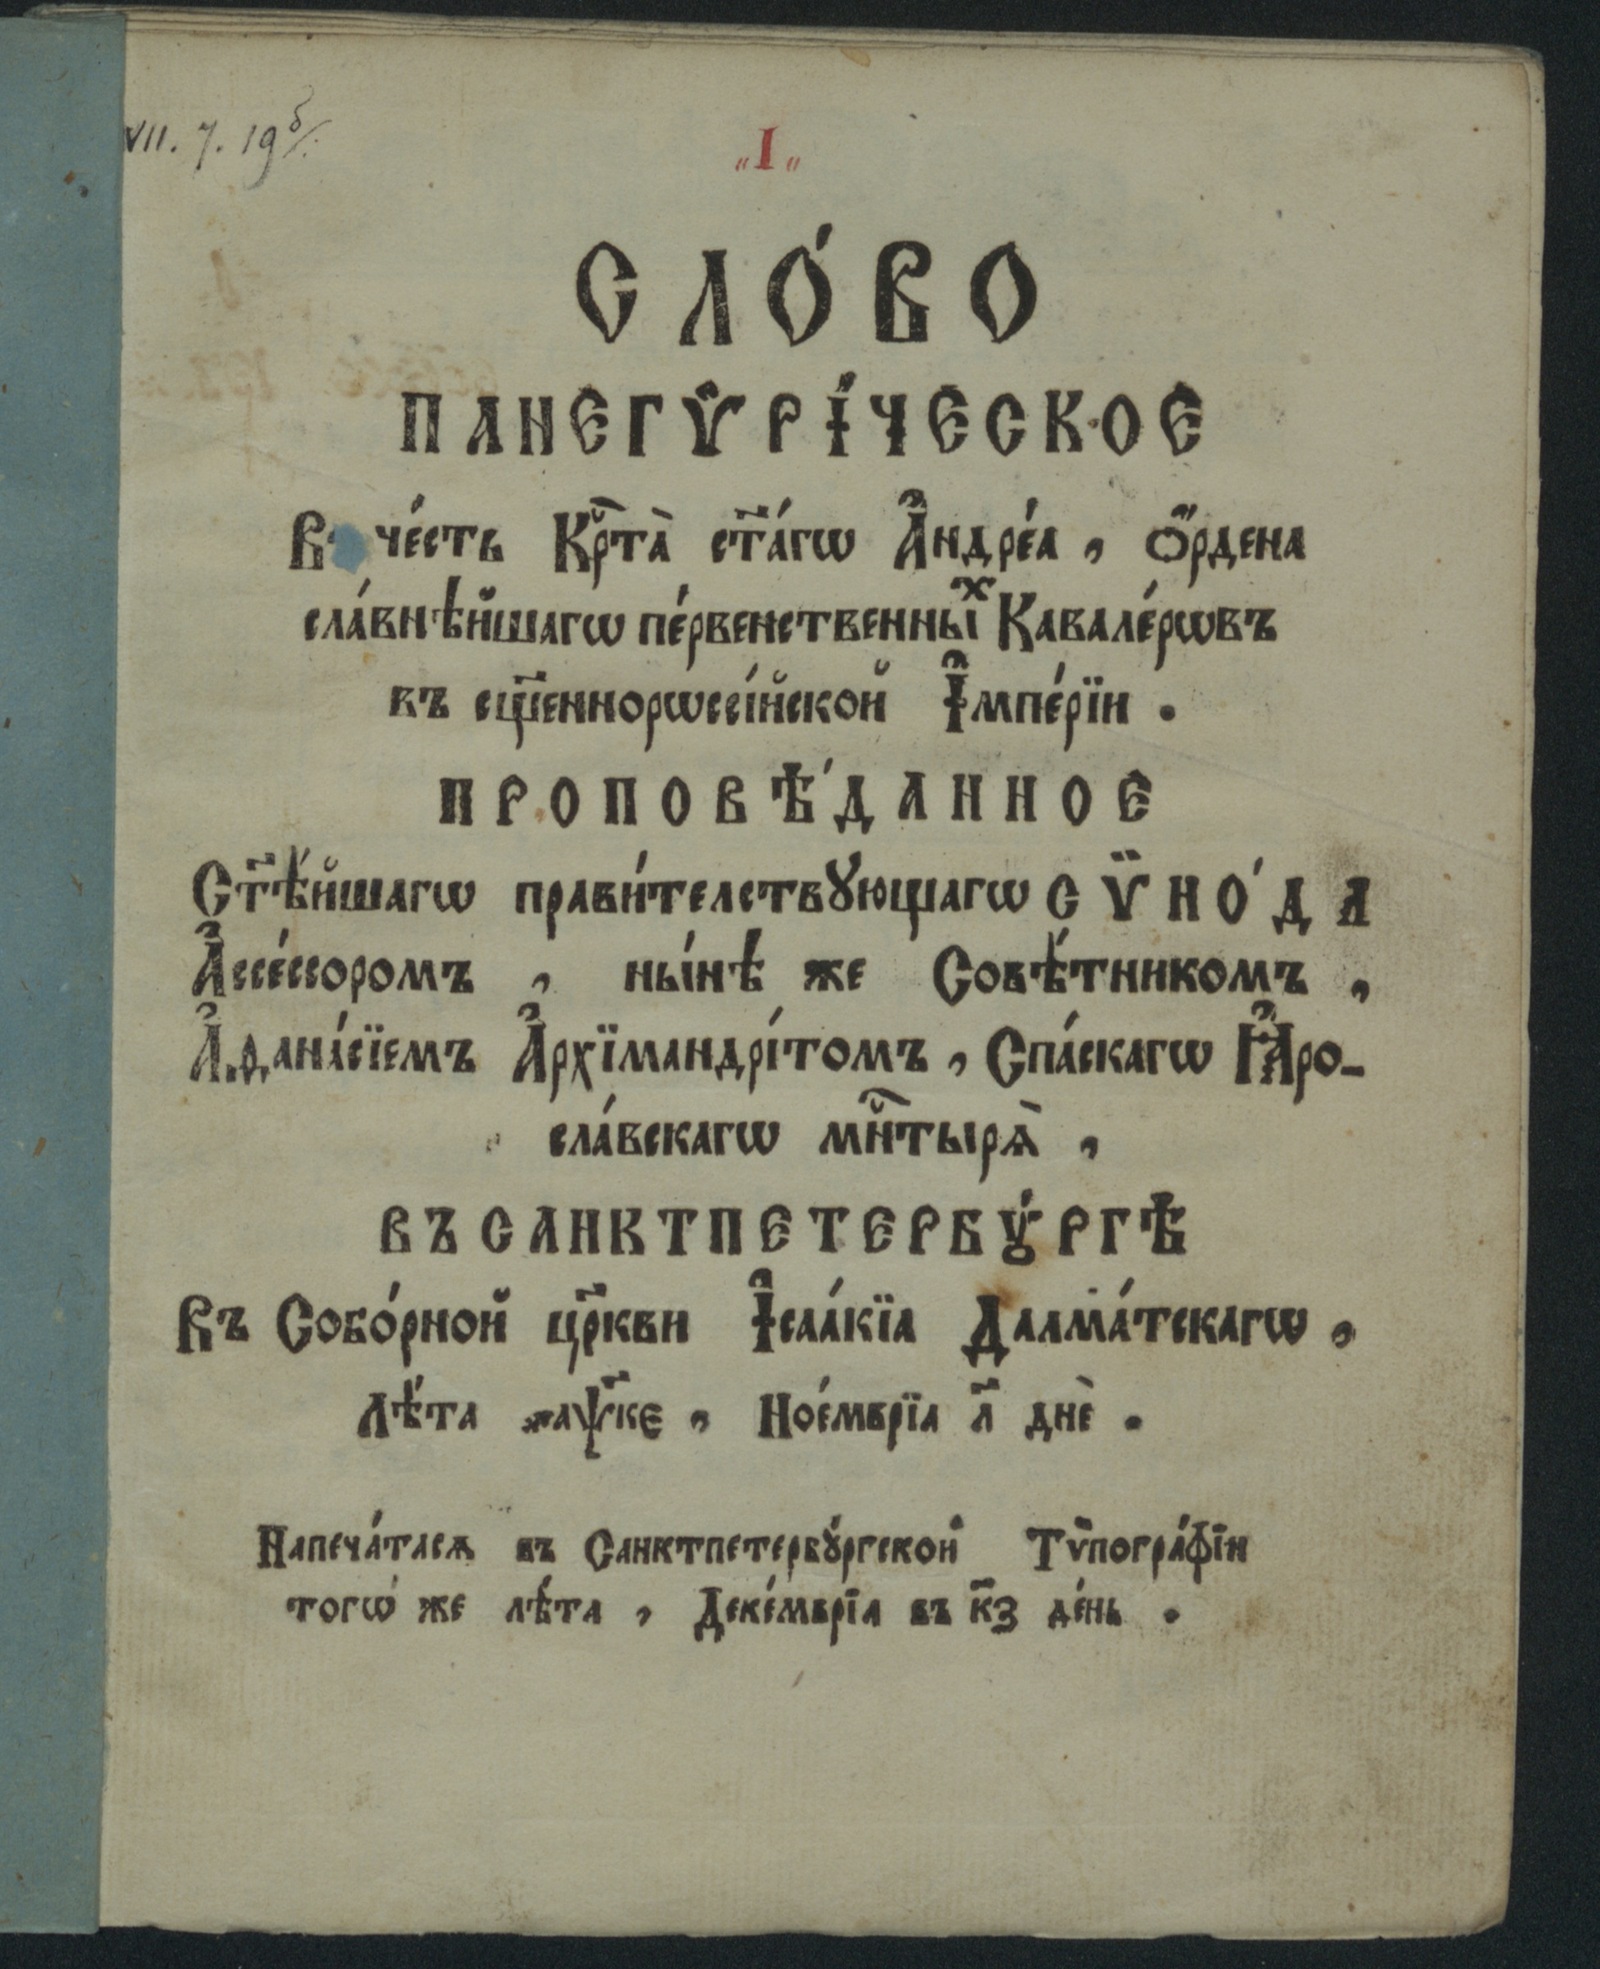 VII. 7. 19 б/.
„I„
СЛО́ВО
ПАНЕГѴ̈РІ́ЧЕСКОЕ
В че́сть Крⷭ҇та̀ ст҃а́гѡ А҆ндре́а , Ѻ҆́рдена
сла́внѣйшагѡ пе́рвенственныⷯ Кавале́рѡвъ
въ сщ҃еннорѡссі́йской І҆мпе́рїи .
ПРОПОВѢ́ДАННОЕ
Ст҃ѣ́йшагѡ прави́телствꙋющагѡ СѴ̈НО́ДА
А҆ссе́ссоромъ , ны́нѣ же Совѣ́тникомъ ,
А҆ѳана́сїемъ А҆рхїмандрі́томъ , Спа́скагѡ Ꙗ҆ро-
сла́вскагѡ мнⷭ҇тырѧ̀ ,
ВЪ САНКТПЕТЕРБꙊ́РГѢ
Въ Собо́рной цр҃кви І҆саа́кїа Далма́тскагѡ ,
Лѣ́та ҂аѱ҃ке , Ное́мврїа л҃ днѐ .
Напеча́тасѧ въ Санктпетербꙋ́ргской Тѷпогра́фїи
тогѡ́ же лѣ́та , Деке́мврїа въ к҃з де́нь .